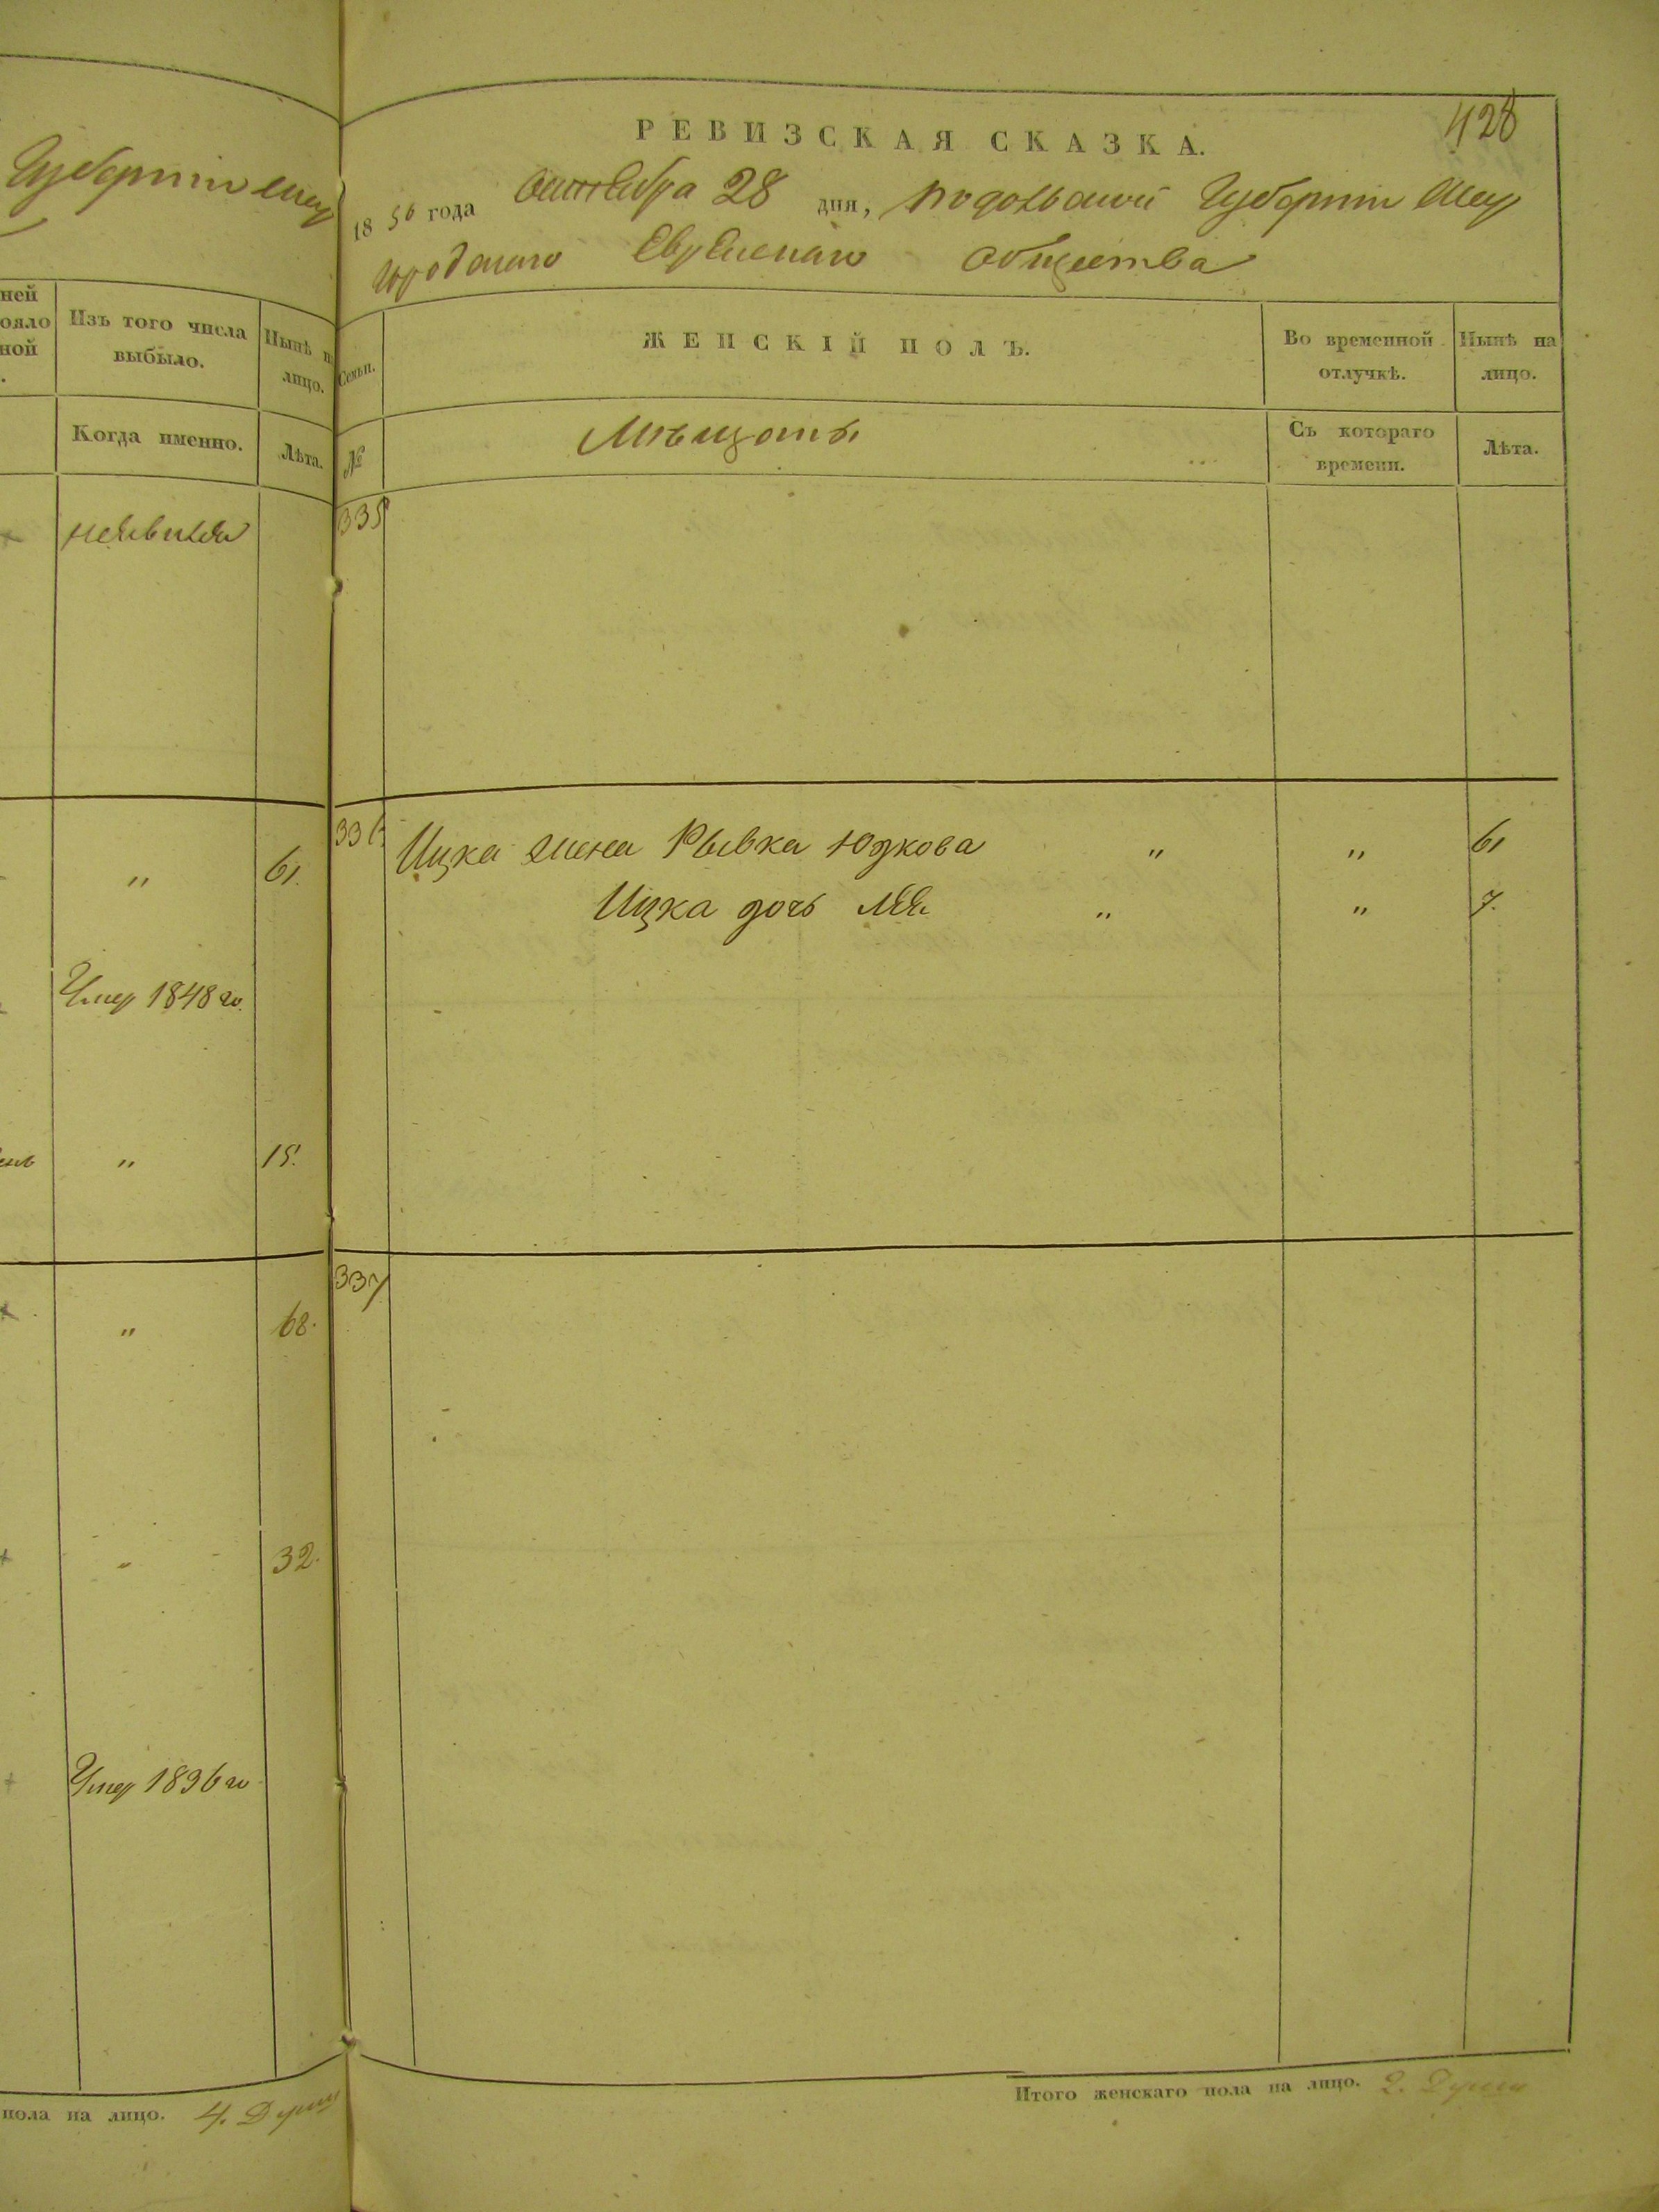 Губерніи
ней
ояло
ной
Изъ того числа
выбыло.
Нынѣ на
лицо.
Когда именно.
Лѣта.
неявился
" 61.
Умер 1848 го.
" 15.
" 68.
" 32.
Умер 1836 го
пола на лицо. 4. Души
428
РЕВИЗСКАЯ СКАЗКА.
1850 года Октября 28 дня, Подольской Губерніи
городскаго Еврейскаго общества
Семьи.
ЖЕНСКІЙ ПОЛЪ.
Во временной
отлучкѣ.
Нынѣ на
лицо.
№
Мѣщаны
Съ котораго
времени.
Лѣта.
335
336 Ицка жена Рывка Юдкова " " 61
Ицка дочь Лея " " 7.
337
Итого женскаго пола на лицо. 2. Души